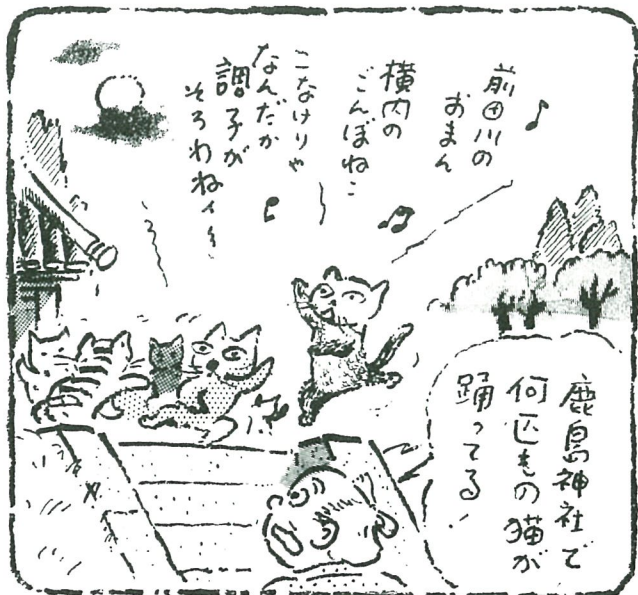 ♪
前田川の
おまん
横内の
ごんぼねこ
こなけりゃ
なんだか
調子が
そろわねぇ〜
鹿島神社で
何匹もの猫が
踊ってる!